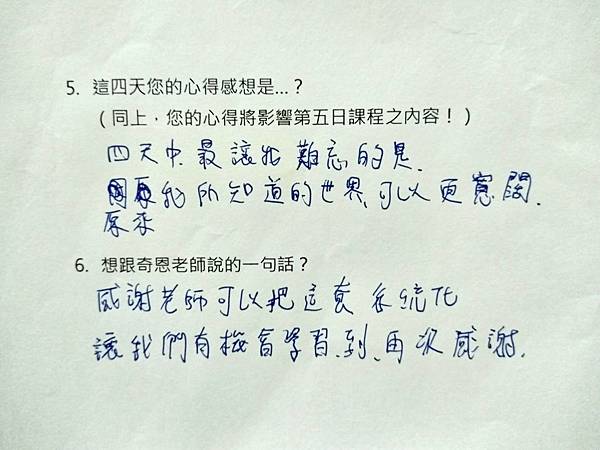 5. 這四天您的心得感想是…？
（同上，您的心得將影響第五日課程之內容！）
四天中最讓我難忘的是.
我所知道的世界,可以更寬闊.
原來
6. 想跟奇恩老師說的一句話？
感謝老師可以把這套系統化
讓我們有機會學習到,再次感謝.